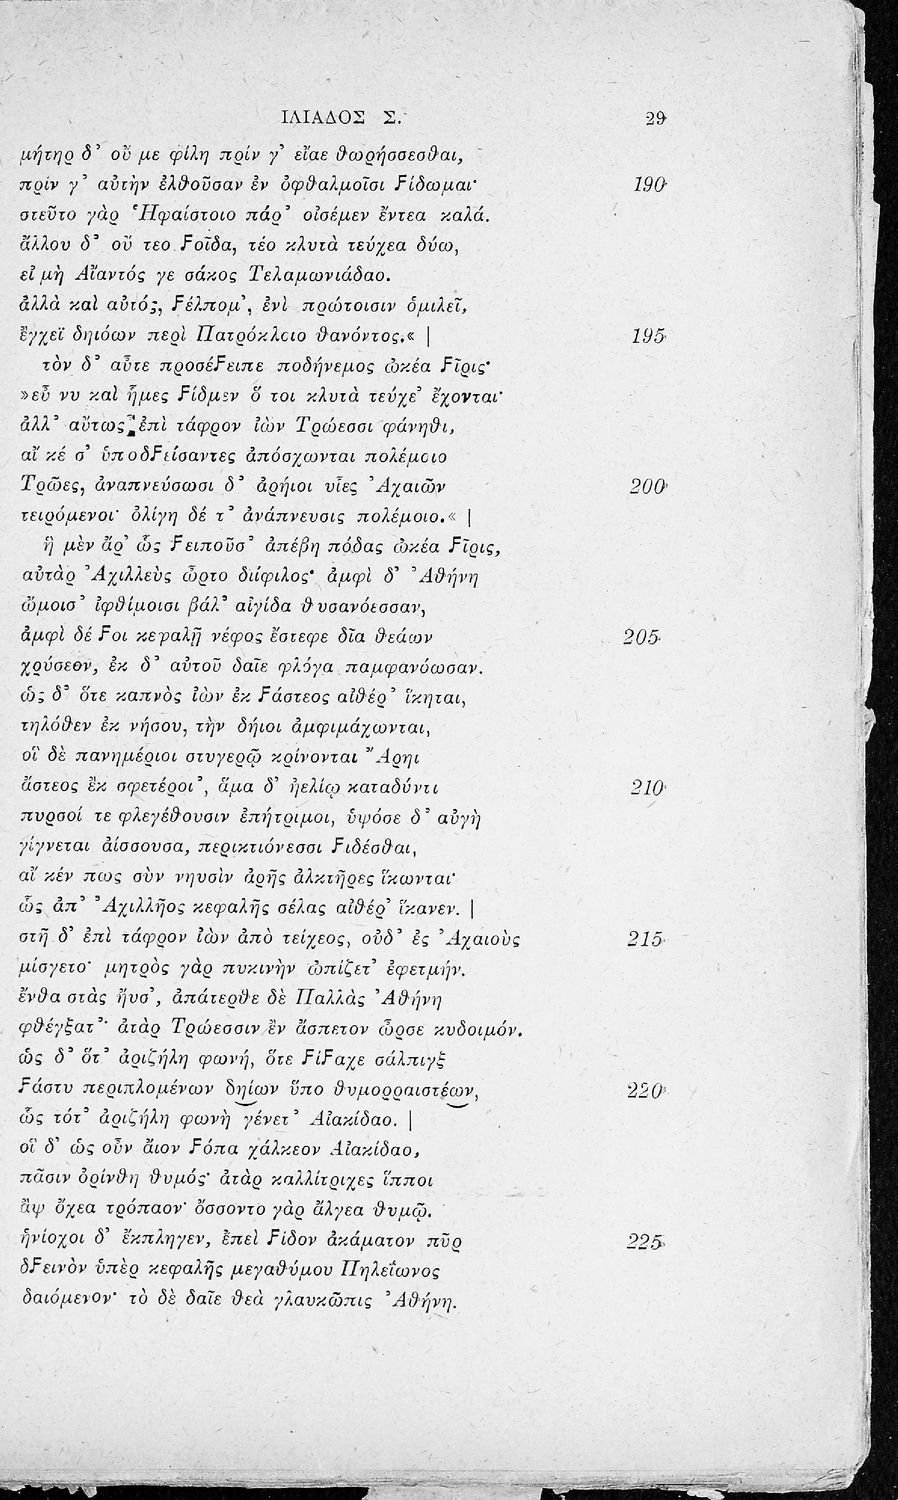 ΙΛΙΑΔΟΣ Σ. 29
μήτηρ δ' οὔ με φίλη πρίν γ' εἴαε θωρήσσεσθαι,
πρίν γ' αὐτὴν ἐλθοῦσαν ἐν ὀφθαλμοῖσι Ϝίδωμαι· 190
στεῦτο γὰρ Ἡφαίστοιο πάρ' οἰσέμεν ἔντεα καλά.
ἄλλου δ' οὔ τεο Ϝοῖδα, τέο κλυτὰ τεύχεα δύω,
εἰ μὴ Αἴαντός γε σάκος Τελαμωνιάδαο.
ἀλλὰ καὶ αὐτός, Ϝέλπομ', ἐνὶ πρώτοισιν ὁμιλεῖ,
ἔγχεϊ δηιόων περὶ Πατρόκλοιο θανόντος.« | 195
τὸν δ' αὖτε προσέϜειπε ποδήνεμος ὠκέα Ϝῖρις·
»εὖ νυ καὶ ἦμες Ϝίδμεν ὅ τοι κλυτὰ τεύχε' ἔχονται·
ἀλλ' αὔτως ἐπὶ τάφρον ἰὼν Τρώεσσι φάνηθι,
αἴ κέ σ' ὑποδϜείσαντες ἀπόσχωνται πολέμοιο
Τρῶες, ἀναπνεύσωσι δ' ἀρήιοι υἷες Ἀχαιῶν 200
τειρόμενοι· ὀλίγη δέ τ' ἀνάπνευσις πολέμοιο.« |
ἣ μὲν ἄρ' ὣς Ϝειποῦσ' ἀπέβη πόδας ὠκέα Ϝῖρις,
αὐτὰρ Ἀχιλλεὺς ὦρτο διίφιλος· ἀμφὶ δ' Ἀθήνη
ὤμοισ' ἰφθίμοισι βάλ' αἰγίδα θυσανόεσσαν,
ἀμφὶ δέ Ϝοι κεφαλῇ νέφος ἔστεφε δῖα θεάων 205
χρύσεον, ἐκ δ' αὐτοῦ δαῖε φλόγα παμφανόωσαν.
ὡς δ' ὅτε καπνὸς ἰὼν ἐκ Ϝάστεος αἰθέρ' ἵκηται,
τηλόθεν ἐκ νήσου, τὴν δήιοι ἀμφιμάχωνται,
οἳ δὲ πανημέριοι στυγερῷ κρίνονται Ἄρηι
ἄστεος ἒκ σφετέροι', ἅμα δ' ἠελίῳ καταδύντι 210
πυρσοί τε φλεγέθουσιν ἐπήτριμοι, ὑψόσε δ' αὐγὴ
γίγνεται ἀίσσουσα, περικτιόνεσσι Ϝιδέσθαι,
αἴ κέν πως σὺν νηυσὶν ἀρῆς ἀλκτῆρες ἵκωνται·
ὣς ἀπ' Ἀχιλλῆος κεφαλῆς σέλας αἰθέρ' ἵκανεν. |
στῆ δ' ἐπὶ τάφρον ἰὼν ἀπὸ τείχεος, οὐδ' ἐς Ἀχαιοὺς 215
μίσγετο· μητρὸς γὰρ πυκινὴν ὠπίζετ' ἐφετμήν.
ἔνθα στὰς ἤυσ', ἀπάτερθε δὲ Παλλὰς Ἀθήνη
φθέγξατ'· ἀτὰρ Τρώεσσιν ἐν ἄσπετον ὦρσε κυδοιμόν.
ὡς δ' ὅτ' ἀριζήλη φωνή, ὅτε ϜίϜαχε σάλπιγξ
Ϝάστυ περιπλομένων δηίων ὕπο θυμορραιστέων, 220
ὣς τότ' ἀριζήλη φωνὴ γένετ' Αἰακίδαο. |
οἳ δ' ὡς οὖν ἄιον Ϝόπα χάλκεον Αἰακίδαο,
πᾶσιν ὀρίνθη θυμός· ἀτὰρ καλλίτριχες ἵπποι
ἂψ ὄχεα τρόπαον· ὄσσοντο γὰρ ἄλγεα θυμῷ.
ἡνίοχοι δ' ἔκπληγεν, ἐπεὶ Ϝίδον ἀκάματον πῦρ 225
δϜεινὸν ὑπὲρ κεφαλῆς μεγαθύμου Πηλεΐωνος
δαιόμενον· τὸ δὲ δαῖε θεὰ γλαυκῶπις Ἀθήνη.